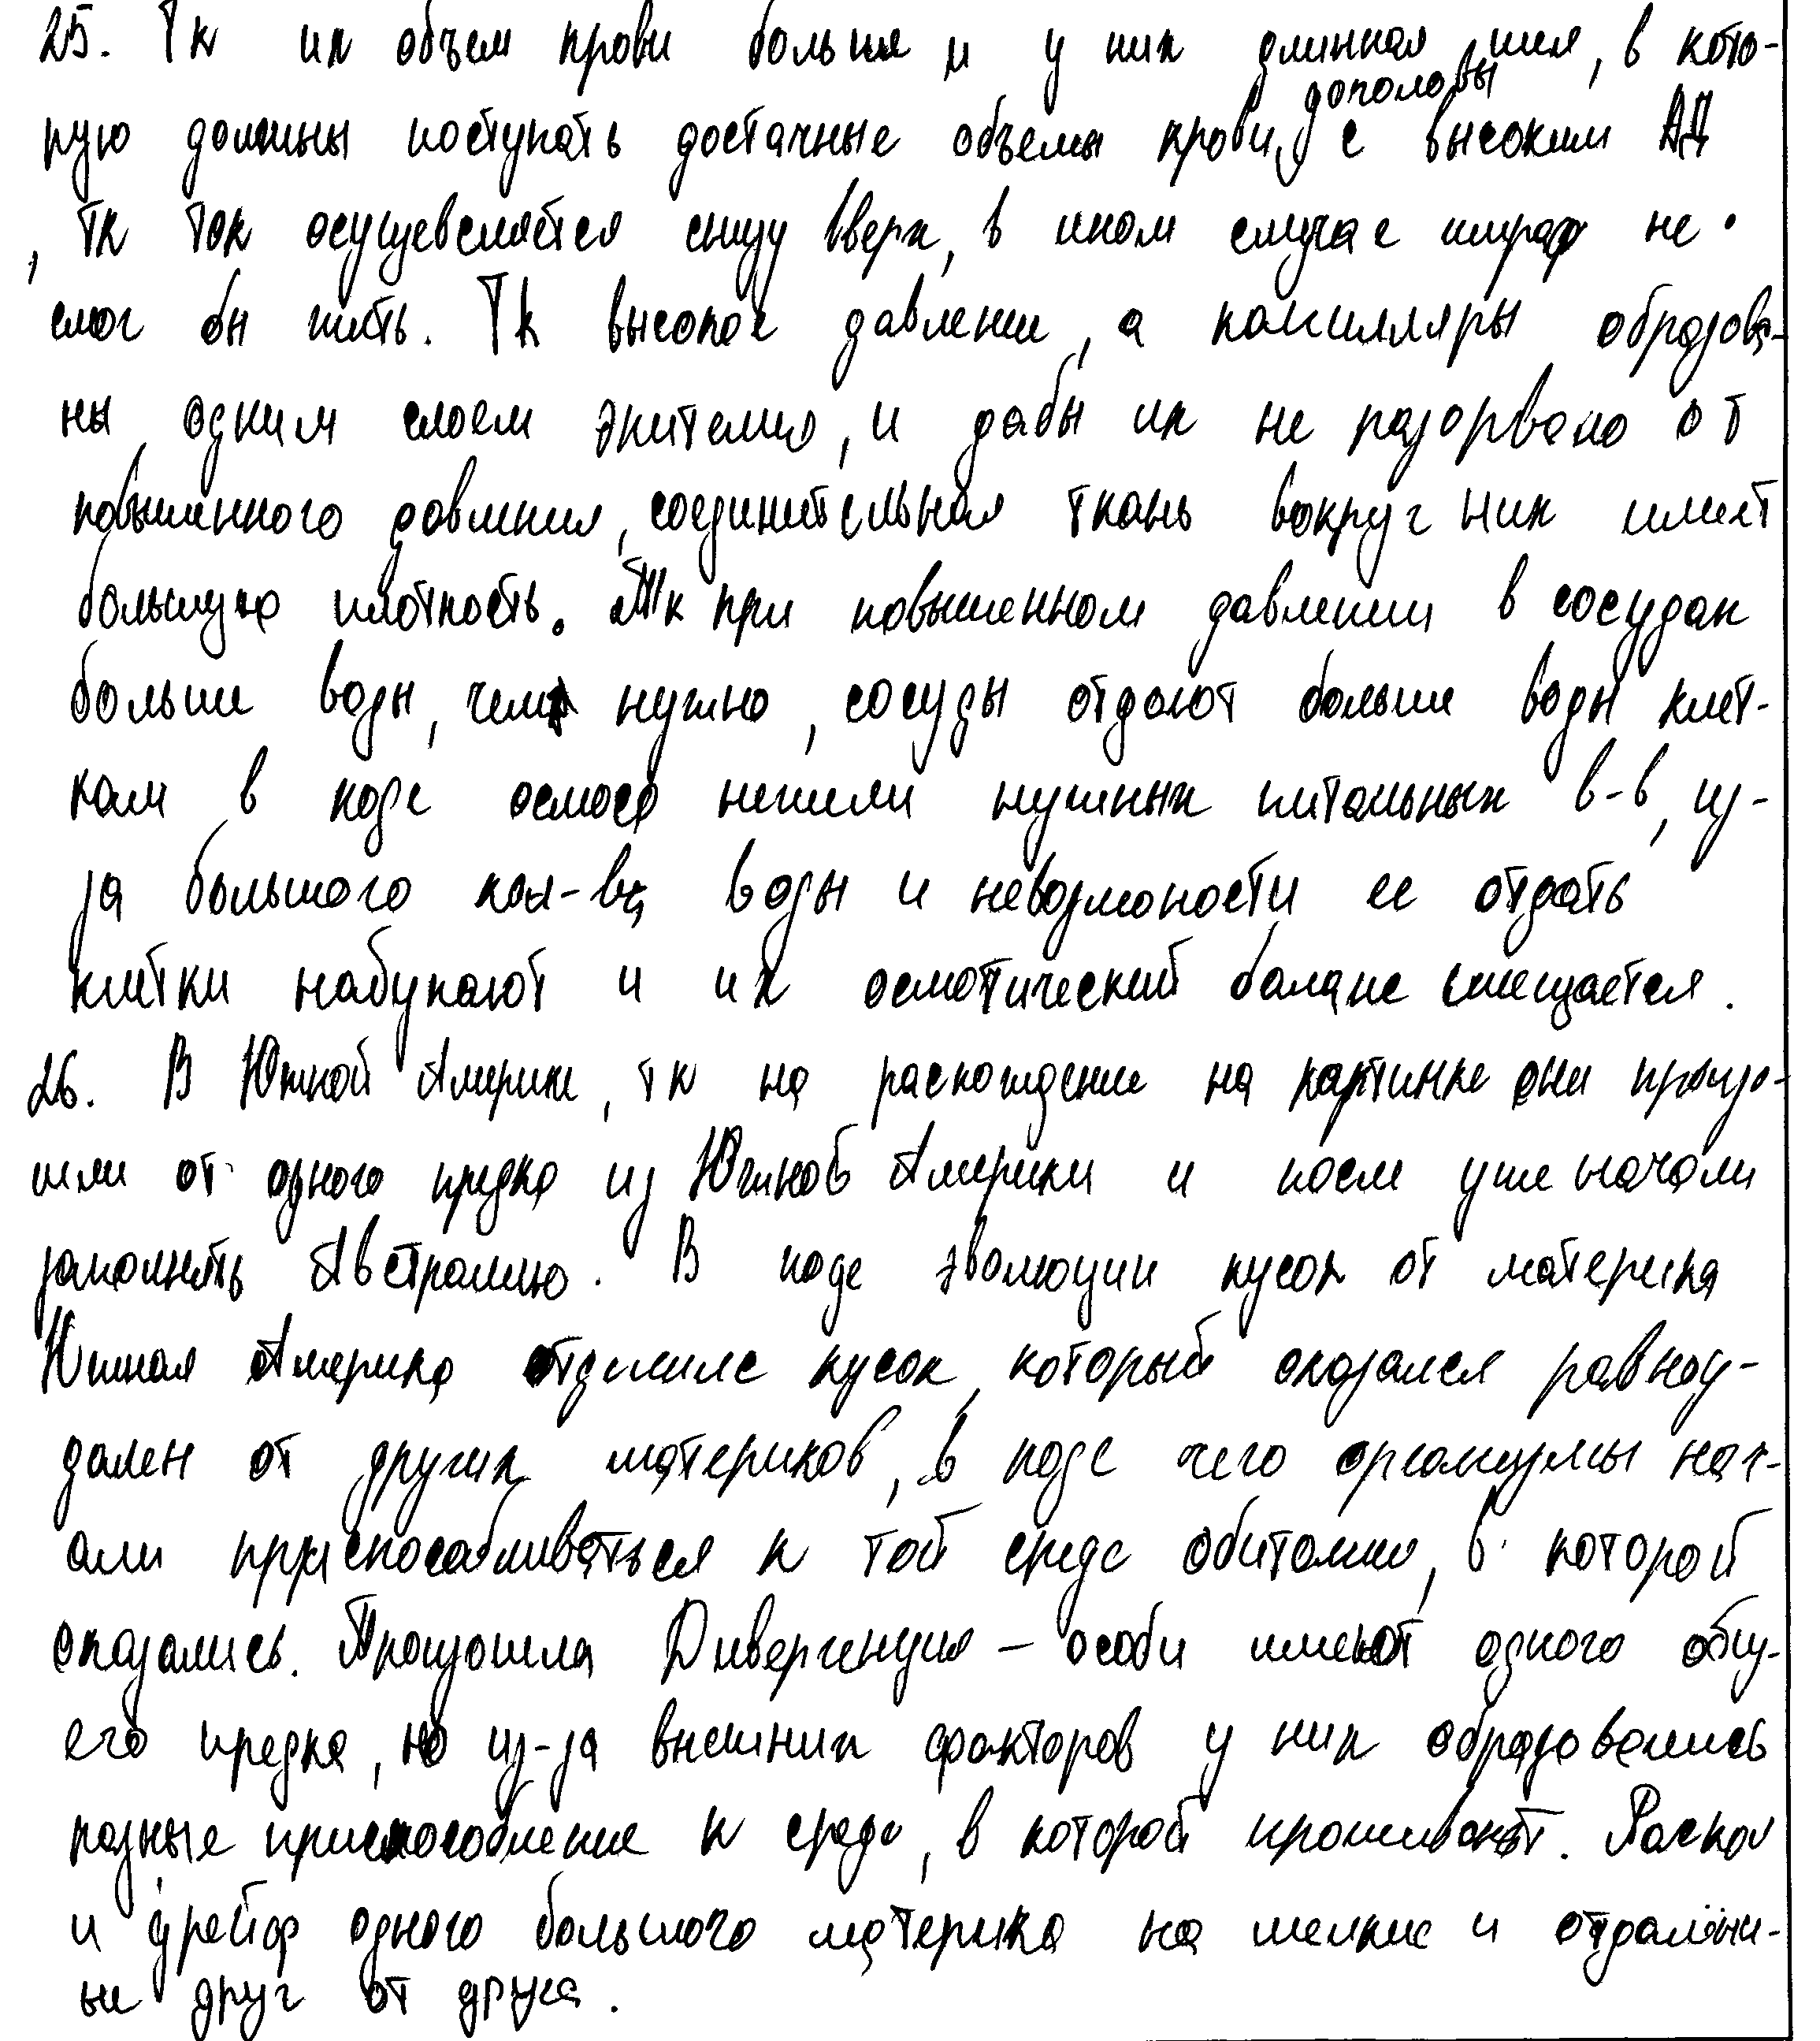 25. Тк их объем крови больше и у них длинная шея, в кото-
рую должны поступать достачные объемы крови, до головы с высоким АД
, тк ток осущевсляется снизу вверх, в ином случае жираф не
смог бы жить. Тк высокое давление, а капилляры образова-
ны одним слоем эпителия, и дабы их не разорвало от
повышенного давления, соединительная ткань вокруг них имеет
большую плотность. Тк при повышенном давлении в сосудах
больше воды, чем нужно, сосуды отдают больше воды клет-
кам в ходе осмоса нежели нужных питальных в-в, из-
за большого кол-ва воды и невозможности ее отдать
клетки набухают и их осмотический баланс смещается.
26. В Южной Америке, тк на расхождение на картинке они произо-
шли от одного предка из Южной Америки и после уже начали
заполнять Австралию. В ходе эволюции кусок от материка
Южная Америка отделилс кусок, который оказался равноу-
дален от других материков, в ходе чего организмы нач-
али приспосабливаться к той среде обитания, в которой
оказались. Произошла Дивергенция – особи имеют одного общ-
его предка, но из-за внешних факторов у них образовались
разные приспособления к среде, в которой проживают. Раскол
и дрейф одного большого материка на мелкие и отдалённы-
ые друг от друга.